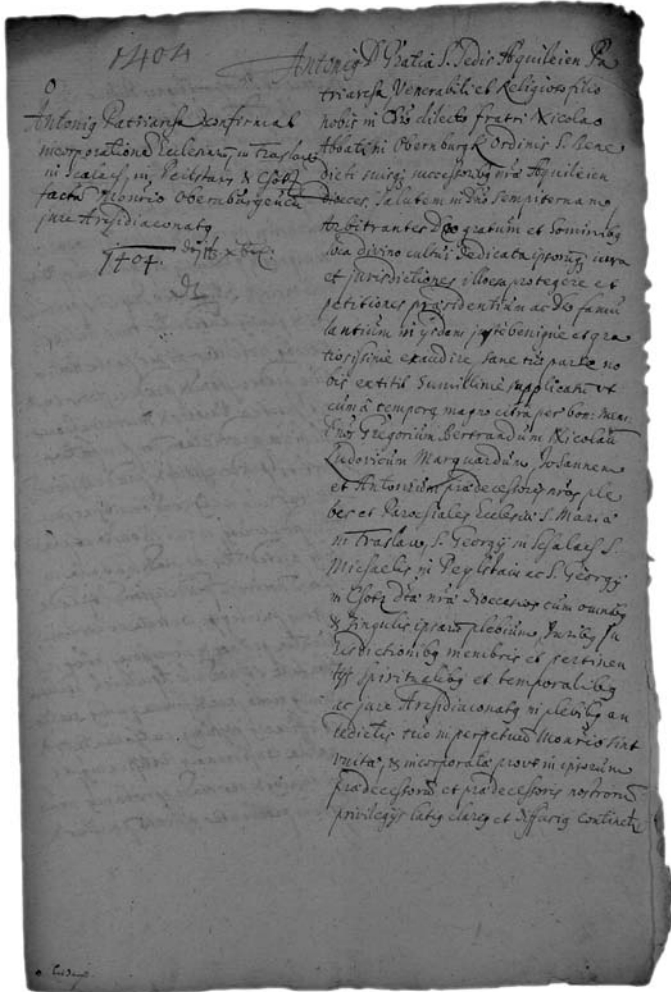 1404
Antonig Patriarcha confirmat
incorporatione Ecclesiarum in Fraslaw
in Scalach, in Peilstain & Chotz
facta Monrio Obernburgensi
jure Archidiaconatg
1404.
Antonig D. Gratia S. Sedis Aquileien Pa
triarcha Venerabili et Religioso filio
nobis in Chro dilecto fratri Nicolao
Abbati in Obernburgk Ordinis S. Bene
dicti suisq successoribg nrae Aquileien
dioces. Salutem in Dno Sempiternam
Arbitrantes Deo gratum et hominibg
loca divino cultui dedicata ipsorumq iura
et jurisdictiones illaesa protegere et
petitiones praesidentium ac Deo famu
lantium in ijsdem juste benigne et gra
tiosissime exaudire sane tui parte no
bis extitit humillime supplicatu ut
cum a temporg magno citra per bon: mem:
Gregorium Bertrandum Nicolau
Ludovicum Marquardum, Johannem
et Antonium praedecessores nros ple
bes et Parochiales Ecclesiae S. Maria
in Fraslaw, S. Georgij in Schalach S.
Michaelis in Peylstain ac S. Georgij
in Chotz dtae nrae Dioecesis cum omnibg
& singulis ipsaru plebium, Juribg Ju
risdictionibg membris et pertinen
tijs spiritualibg et temporalibg
ac jure Archidiaconatg in plebibg an
tedictis tuo in perpetuo Monrio sint
unita, & incorporata prout in ipsorum
praedecessoru et praedecessoris nostroru
privilegijs latig clareg et diffusig continetr